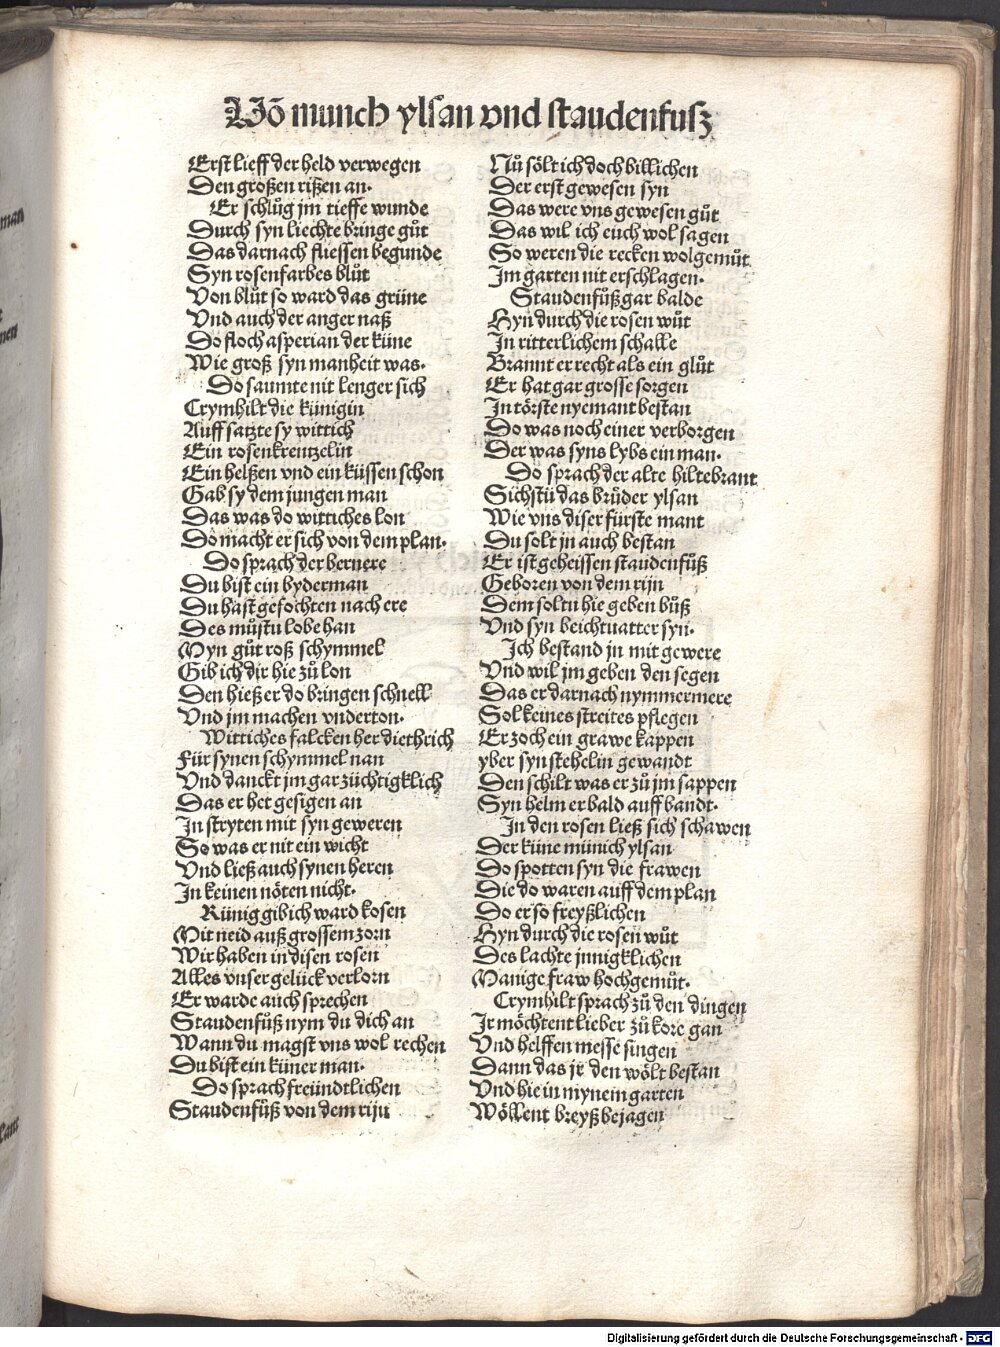 Võ munch ylsan vnd staudenfusz
Erst lieff der held verwegen
Den großen rißen an.
Er schlůg jm tieffe wunde
Durch syn liechte bringe gůt
Das darnach fliessen begunde
Syn rosenfarbes blůt
Von blůt so ward das grüne
Vnd auch der anger naß
Do floch asperian der küne
Wie groß syn manheit was.
Do saumte nit lenger sich
Crymhilt die künigin
Auff satzte sy wittich
Ein rosenkrentzelin
Ein helßen vnd ein küssen schon
Gab sy dem jungen man
Das was do wittiches lon
Do macht er sich von dem plan.
Do sprach der bernere
Du bist ein byderman
Du hast gefochten nach ere
Des můstu lobe han
Myn gůt roß schymmel
Gib ich dir hie zů lon
Den hieß er do bringen schnell
Vnd jm machen vnderton.
Wittiches falcken her diethrich
Für synen schymmel nan
Vnd danckt jm gar züchtigklich
Das er het gesigen an
In stryten mit syn geweren
So was er nit ein wicht
Vnd ließ auch synen heren
In keinen nöten nicht.
Künig gibich ward kosen
Mit neid auß grossem zorn
Wir haben in disen rosen
Alles vnser gelück verlorn
Er warde auch sprechen
Staudenfůß nym du dich an
Wann du magst vns wol rechen
Du bist ein küner man.
Do sprach freündtlichen
Staudenfůß von dem rijn
Nů sölt ich doch billichen
Der erst gewesen syn
Das were vns gewesen gůt
Das wil ich euch wol sagen
So weren die recken wolgemůt
Im garten nit erschlagen.
Staudenfůß gar balde
Hyn durch die rosen wůt
In ritterlichem schalle
Brannt er recht als ein glůt
Er hat gar grosse sorgen
In törste nyemant bestan
Do was noch einer verborgen
Der was syns lybs ein man.
Do sprach der alte hiltebrant
Sichstu das brůder ylsan
Wie vns diser fürste mant
Du solt jn auch bestan
Er ist geheissen staudenfůß
Geboren von dem rijn
Dem soltu hie geben bůß
Vnd syn beichtuatter syn.
Ich bestand jn mit gewere
Vnd wil jm geben den segen
Das er darnach nymmermere
Sol keines streites pflegen
Er zoch ein grawe kappen
yber syn stehelin gewandt
Den schilt was er zů jm sappen
Syn helm er bald auff bandt.
In den rosen ließ sich schawen
Der küne münich ylsan
Do spotten syn die frawen
Die do waren auff dem plan
Do er so freyßlichen
Hyn durch die rosen wůt
Des lachte jnnigklichen
Manige fraw hochgemůt.
Crymhilt sprach zů den dingen
Ir möchtent lieber zů kore gan
Vnd helffen messe singen
Dann das jr den wölt bestan
Vnd hie in mynem garten
Wöllent breyß bejagen
Digitalisierung gefördert durch die Deutsche Forschungsgemeinschaft - DFG